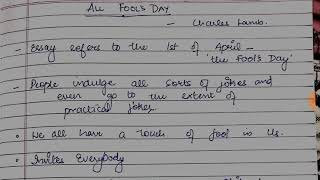 All FOOL'S DAY
- Charles Lamb.
- Essay refers to the 1st of April -
'the Fool's Day'
- People indulge all sorts of jokes and
even go to the extent of
practical jokes.
• We all have a touch of fool in us.
• Invites Everybody